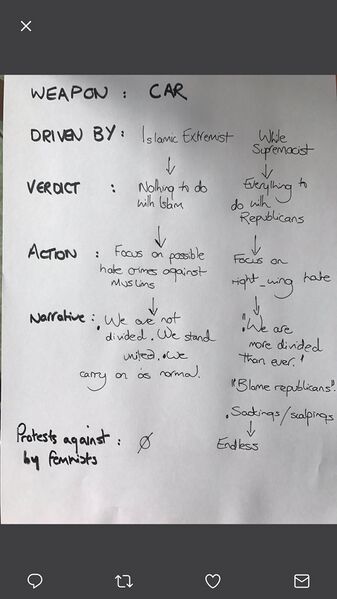 WEAPON : CAR
DRIVEN BY : Islamic Extremist
White
Supremacist
VERDICT :
Nothing to do
with Islam
Everything to
do with
Republicans
ACTION :
Focus on possible
hate crimes against
Muslims
Focus on
right_wing hate
Narrative :
. We are not
divided. We stand
united. We
carry on as normal.
"We are
more divided
than ever."
"Blame republicans".
. Sackings/scalpings
Protests against :
by feminists
Ø
Endless